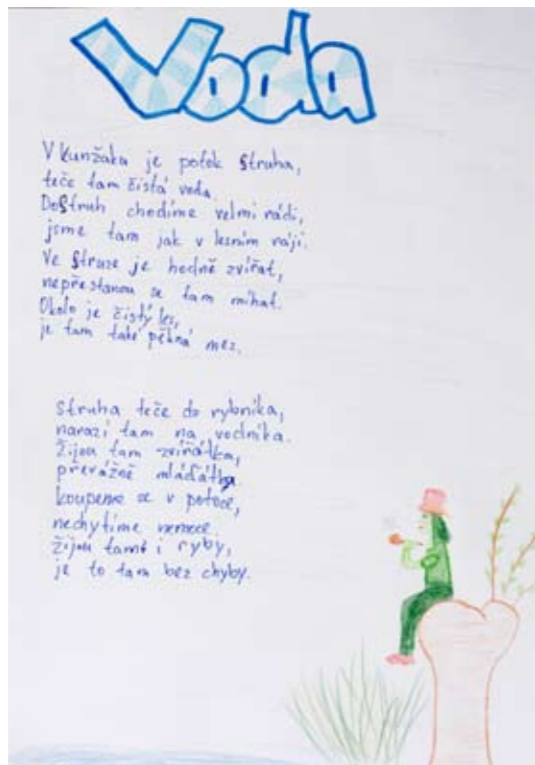 Voda
V Kunžaku je potok Struha,
teče tam čistá voda.
Do Struh chodíme velmi rádi,
jsme tam jak v lesním ráji.
Ve Struze je hodně zvířat,
nepřestanou se tam míhat.
Okolo je čistý les,
je tam také pěkná mez.
Struha teče do rybníka,
narazí tam na vodníka.
Žijou tam zvířátka,
převážně mláďátka
koupeme se v potoce,
nechytíme nemoce.
Žijou tam i ryby,
je to tam bez chyby.